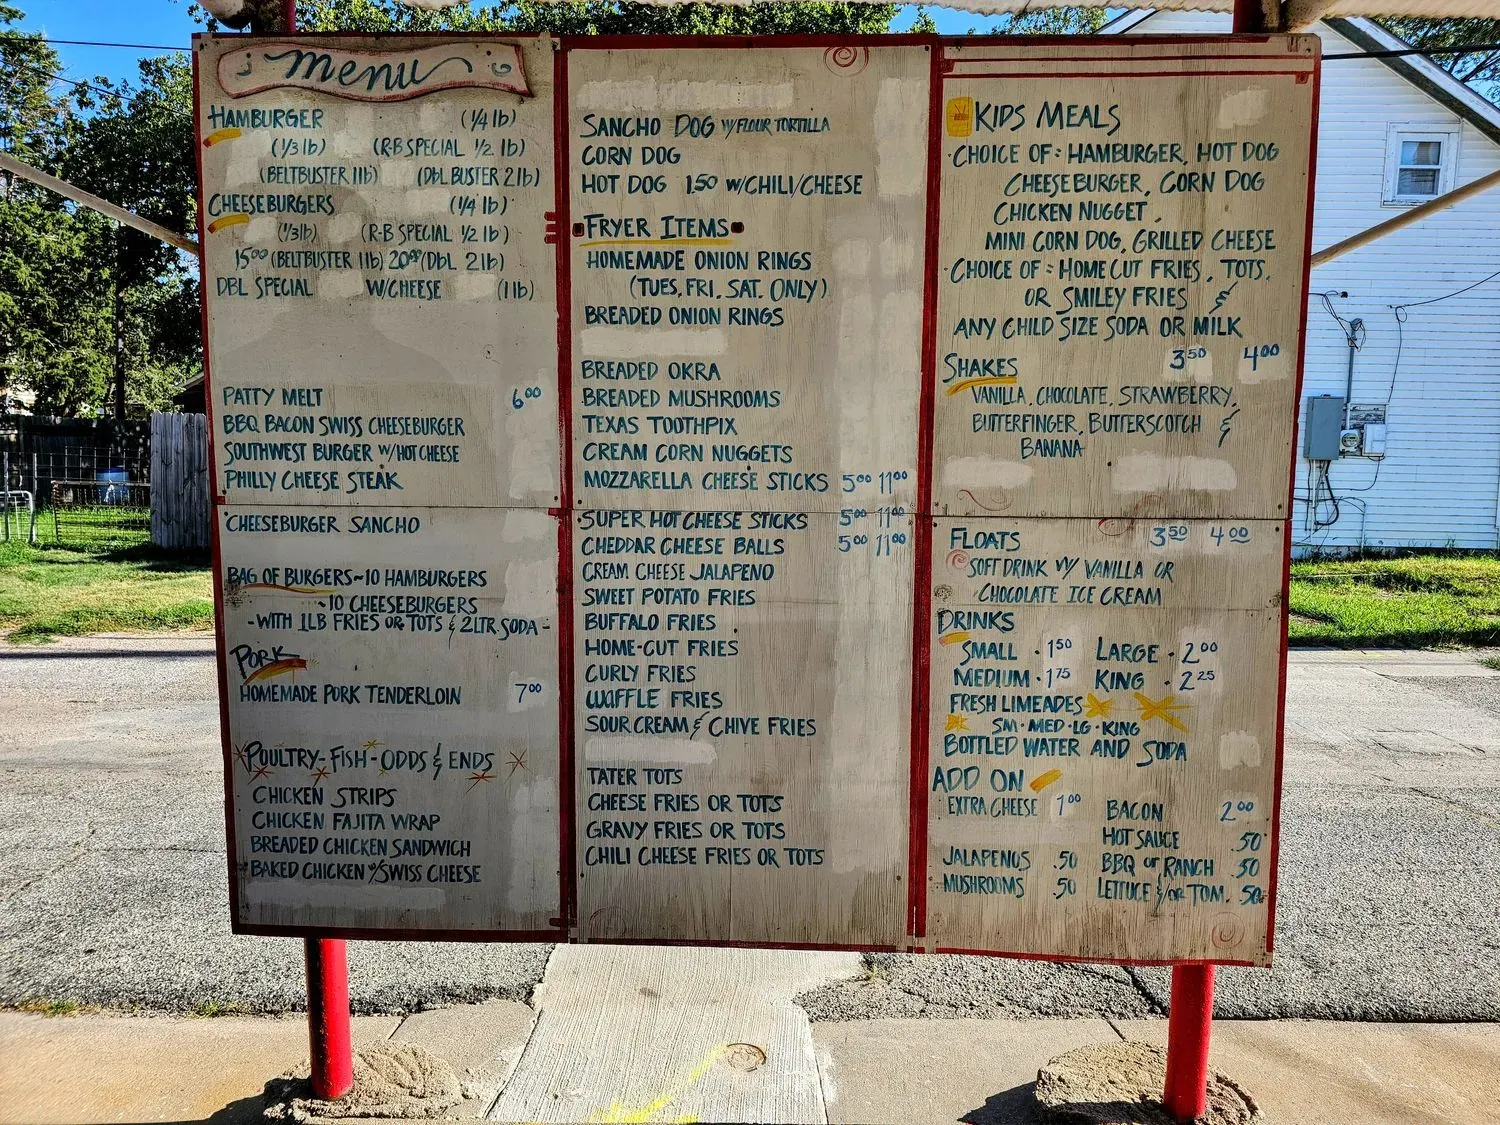 menu
HAMBURGER (1/4 lb)
(1/3 lb) (R-B SPECIAL 1/2 lb)
(BELTBUSTER 1lb) (DbL BUSTER 2lb)
CHEESEBURGERS (1/4 lb)
(1/3lb) (R-B SPECIAL 1/2 lb)
15⁰⁰ (BELTBUSTER 1lb) 20⁰⁰ (DbL 2lb)
DBL SPECIAL W/CHEESE (1 lb)
PATTY MELT 6⁰⁰
BBQ BACON SWISS CHEESEBURGER
SOUTHWEST BURGER W/HOT CHEESE
PHILLY CHEESE STEAK
CHEESEBURGER SANCHO
BAG OF BURGERS~10 HAMBURGERS
~10 CHEESEBURGERS
-WITH 1LB FRIES OR TOTS & 2LTR SODA-
PORK
HOMEMADE PORK TENDERLOIN 7⁰⁰
POULTRY-FISH-ODDS & ENDS
CHICKEN STRIPS
CHICKEN FAJITA WRAP
BREADED CHICKEN SANDWICH
BAKED CHICKEN W/SWISS CHEESE
SANCHO DOG W/FLOUR TORTILLA
CORN DOG
HOT DOG 1.50 W/CHILI/CHEESE
FRYER ITEMS
HOMEMADE ONION RINGS
(TUES, FRI, SAT. ONLY)
BREADED ONION RINGS
BREADED OKRA
BREADED MUSHROOMS
TEXAS TOOTHPIX
CREAM CORN NUGGETS
MOZZARELLA CHEESE STICKS 5⁰⁰ 11⁰⁰
SUPER HOT CHEESE STICKS 5⁰⁰ 11⁰⁰
CHEDDAR CHEESE BALLS 5⁰⁰ 11⁰⁰
CREAM CHEESE JALAPENO
SWEET POTATO FRIES
BUFFALO FRIES
HOME-CUT FRIES
CURLY FRIES
WAFFLE FRIES
SOUR CREAM & CHIVE FRIES
TATER TOTS
CHEESE FRIES OR TOTS
GRAVY FRIES OR TOTS
CHILI CHEESE FRIES OR TOTS
KIDS MEALS
·CHOICE OF: HAMBURGER, HOT DOG
CHEESEBURGER, CORN DOG
CHICKEN NUGGET,
MINI CORN DOG, GRILLED CHEESE
·CHOICE OF: HOME CUT FRIES, TOTS,
OR SMILEY FRIES &
ANY CHILD SIZE SODA OR MILK
SHAKES 3⁵⁰ 4⁰⁰
VANILLA, CHOCOLATE, STRAWBERRY,
BUTTERFINGER, BUTTERSCOTCH &
BANANA
FLOATS 3⁵⁰ 4⁰⁰
SOFT DRINK W/ VANILLA OR
CHOCOLATE ICE CREAM
DRINKS
SMALL · 1⁵⁰ LARGE · 2⁰⁰
MEDIUM · 1⁷⁵ KING · 2²⁵
FRESH LIMEADES
SM · MED · LG · KING
BOTTLED WATER AND SODA
ADD ON
EXTRA CHEESE 1⁰⁰ BACON 2⁰⁰
HOT SAUCE .50
JALAPENOS .50 BBQ OR RANCH .50
MUSHROOMS .50 LETTUCE &/OR TOM. .50